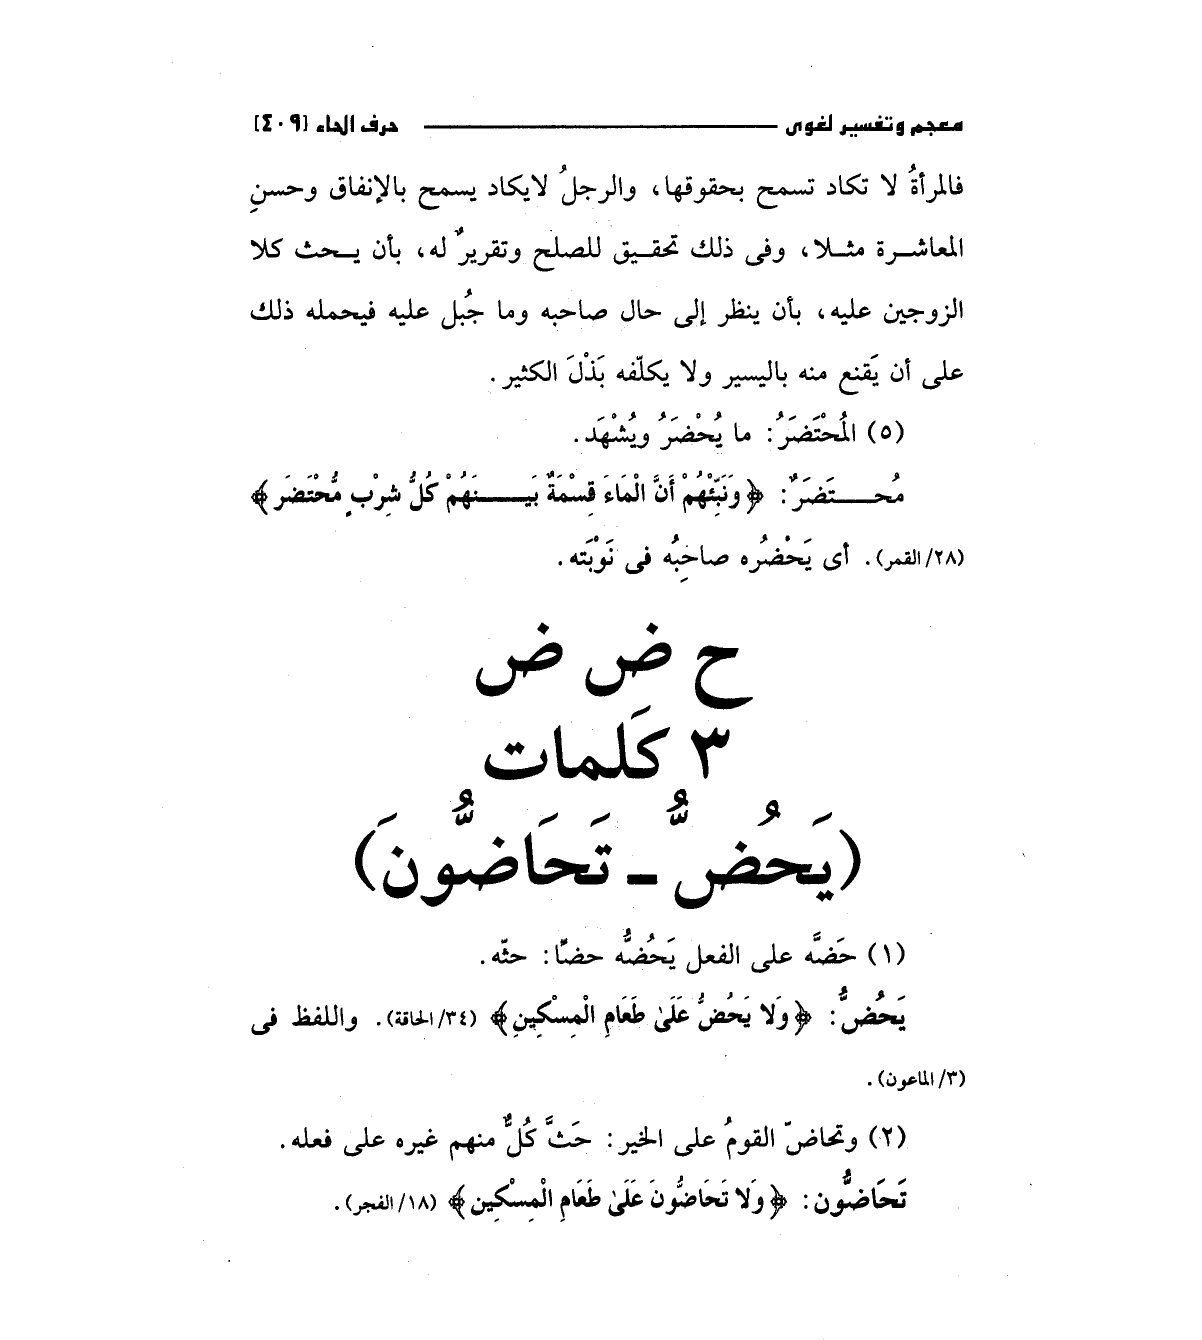 معجم وتفسير لغوى حرف الحاء [٤٠٩]
فالمرأةُ لا تكاد تسمح بحقوقها، والرجلُ لايكاد يسمح بالإنفاق وحسنِ
المعاشـرة مثـلا، وفى ذلك تحقيـق للصلح وتقريرٌ له، بأن يـحث كلا
الزوجين عليه، بأن ينظر إلى حال صاحبه وما جُبل عليه فيحمله ذلك
على أن يَقنع منه باليسير ولا يكلّفه بَذْلَ الكثير.
(٥) المُحْتَضَرُ: ما يُحْضَرُ ويُشْهَد.
مُحـتَضَرٌ: ﴿وَنَبِّئْهُمْ أَنَّ الْمَاءَ قِسْمَةٌ بَيـنَهُمْ كُلُّ شِرْبٍ مُّحْتَضَر﴾
(٢٨/ القمر). أى يَحْضُره صاحِبُه فى نَوْبَته.
ح ض ض
٣ كَلمات
(يَحُضُّ ـ تَحَاضُّونَ)
(١) حَضَّه على الفعل يَحُضُّه حضّا: حثّه.
يَحُضُّ: ﴿وَلا يَحُضُّ عَلَىٰ طَعَامِ الْمِسْكِينِ﴾ (٣٤/ الحاقة). واللفظ فى
(٣/ الماعون).
(٢) وتحاضّ القومُ على الخير: حَثَّ كُلٌّ منهم غيره على فعله.
تَحَاضُّون: ﴿وَلا تَحَاضُّونَ عَلَىٰ طَعَامِ الْمِسْكِين﴾ (١٨/ الفجر).